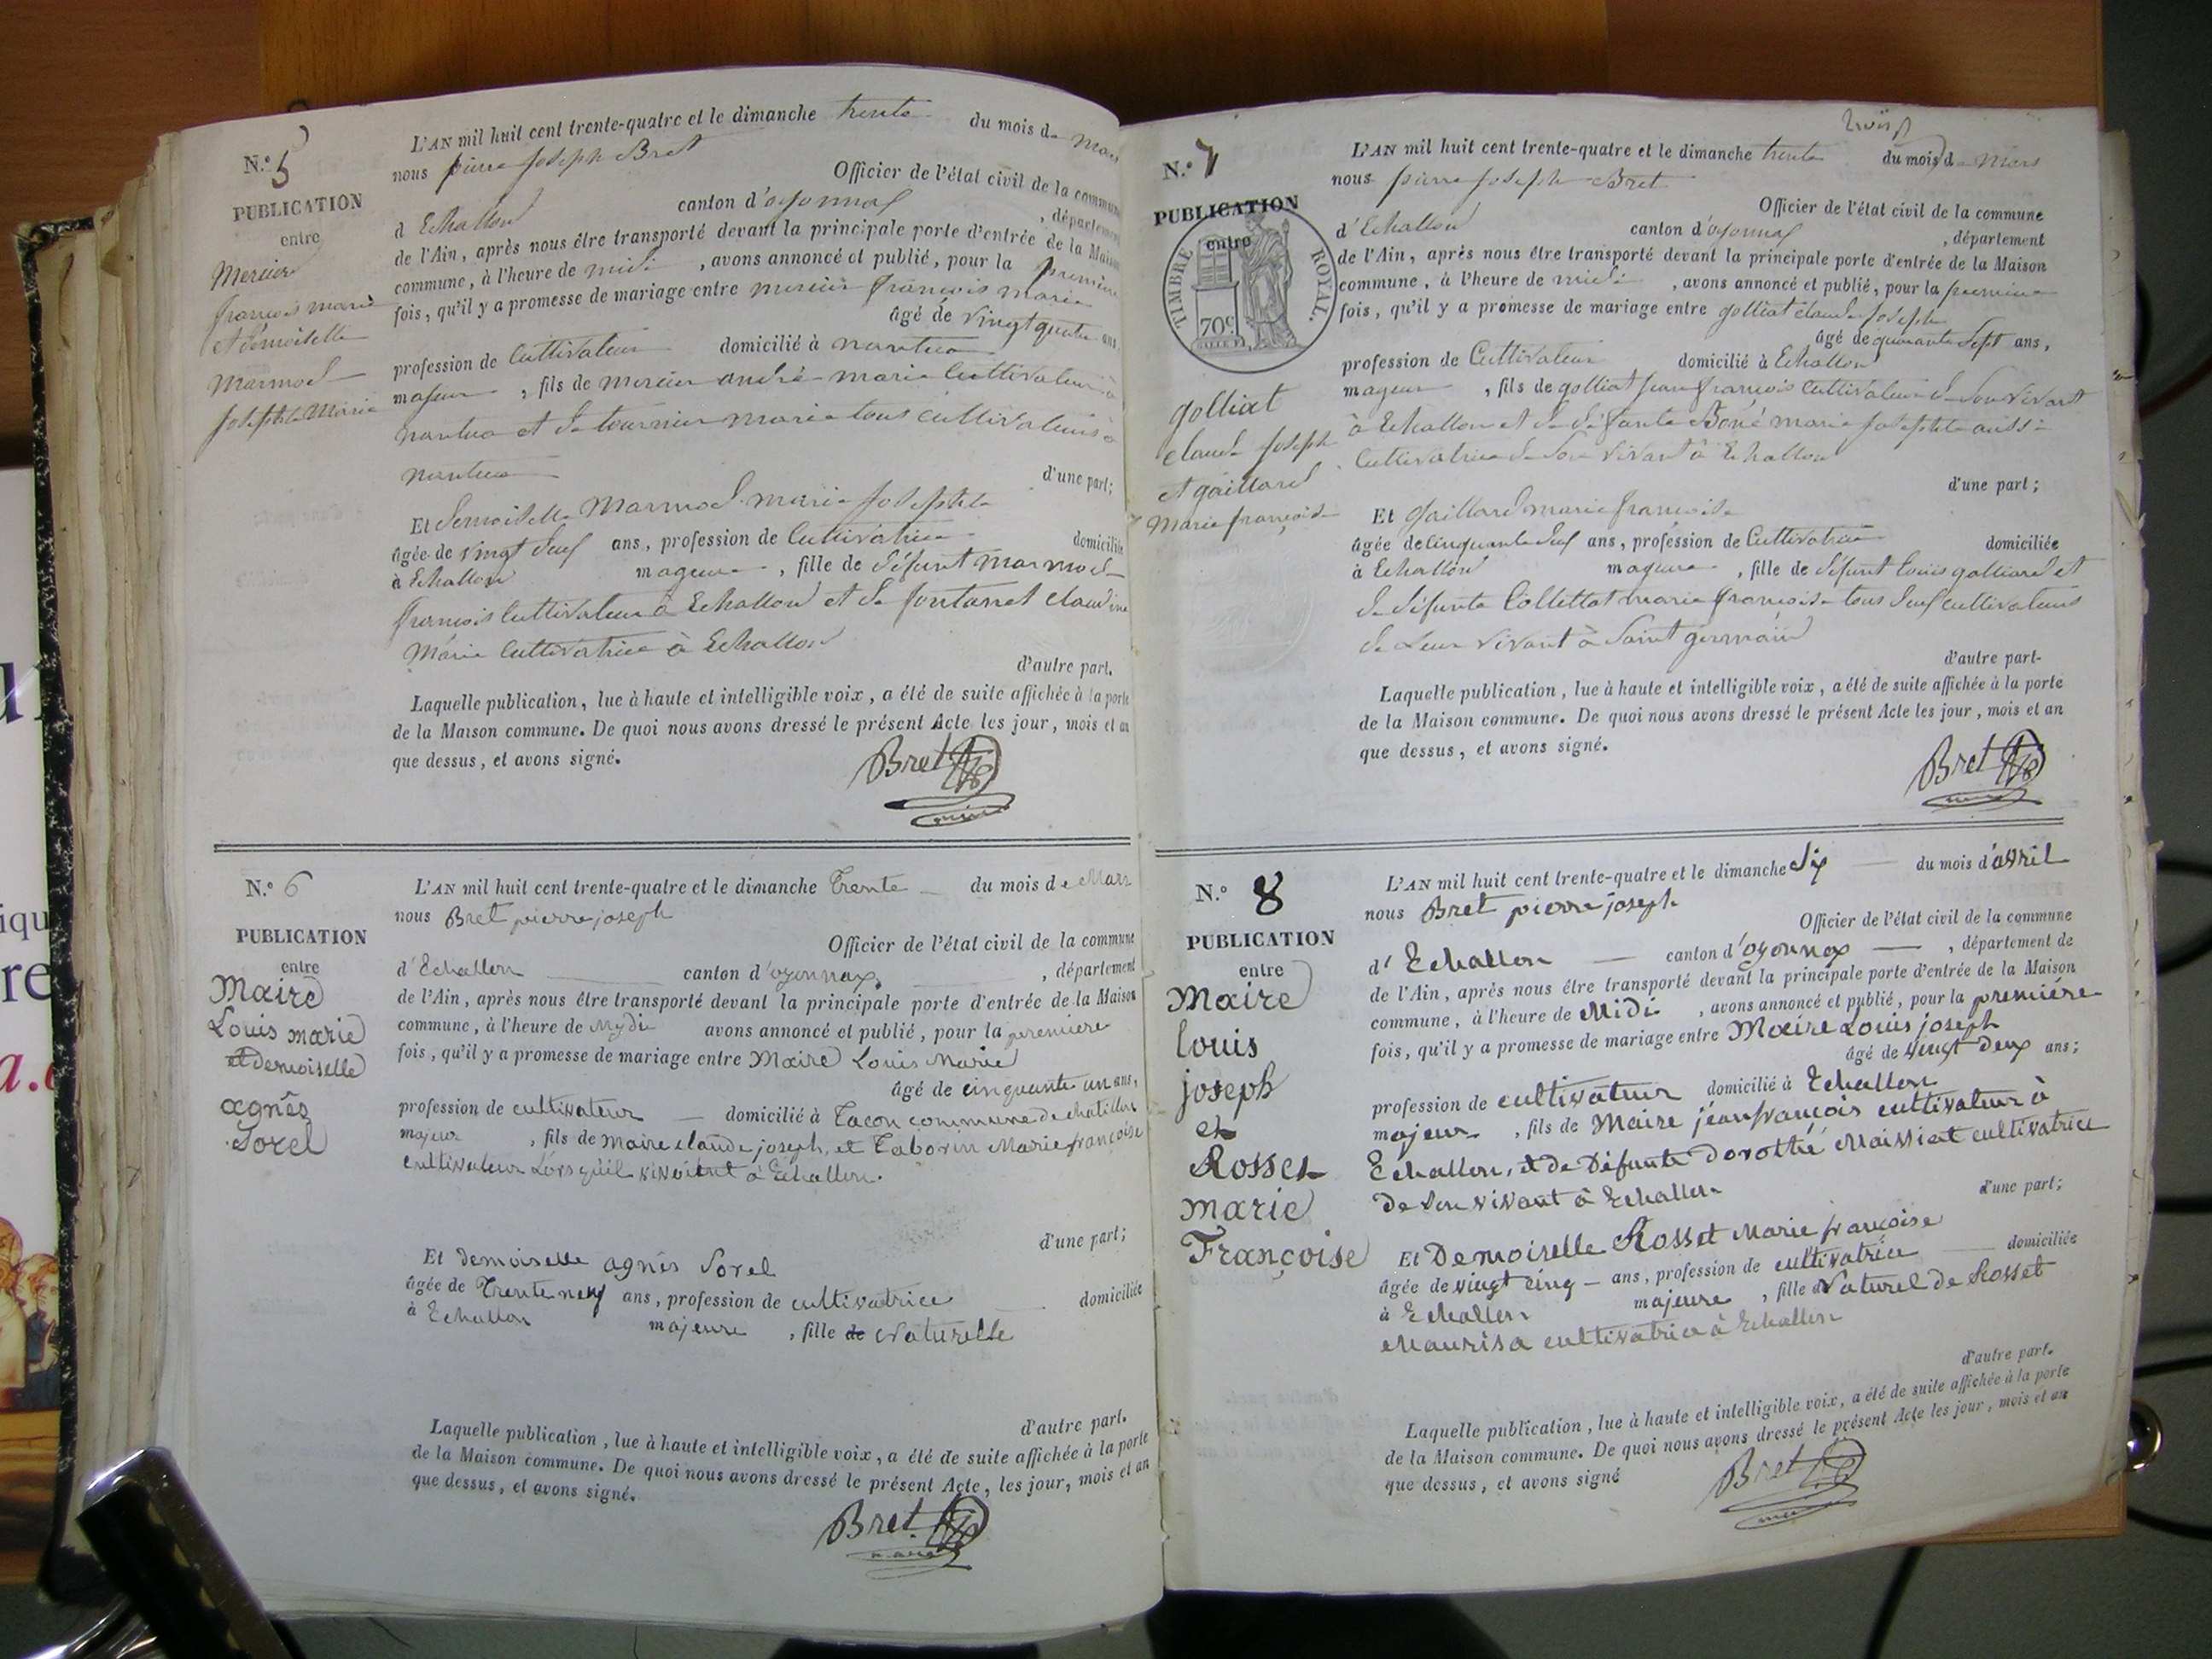 N.º 5
PUBLICATION
entre
Mercier
françois marie
et demoiselle
Marmod
Josephte Marie
L'AN mil huit cent trente-quatre et le dimanche trente du mois de mars
nous pierre Joseph Bret
Officier de l'état civil de la commune
d'Echallon canton d'oyonnax, département
de l'Ain, après nous être transporté devant la principale porte d'entrée de la Maison
commune, à l'heure de midi, avons annoncé et publié, pour la premiere
fois, qu'il y a promesse de mariage entre mercier françois marie
âgé de vingt quatre ans,
profession de Cultivateur domicilié à nantua
majeur, fils de mercier andré marie Cultivateur à
nantua et de tournier marie tous cultivateurs à
nantua
d'une part;
Et demoiselle Marmod marie Josephte
âgée de vingt deux ans, profession de Cultivatrice domiciliée
à Echallon mageure, fille de défunt marmod
françois Cultivateur à Echallon et de fontanet claudine
Marie Cultivatrice à Echallon
d'autre part.
Laquelle publication, lue à haute et intelligible voix, a été de suite affichée à la porte
de la Maison commune. De quoi nous avons dressé le présent Acte les jour, mois et an
que dessus, et avons signé.
Bret
N.º 6
PUBLICATION
entre
Maire
Louis marie
et demoiselle
agnès
Sorel
L'AN mil huit cent trente-quatre et le dimanche Trente du mois de Mars
nous Bret pierre joseph
Officier de l'état civil de la commune
d'Echallon canton d'oyonnax, département
de l'Ain, après nous être transporté devant la principale porte d'entrée de la Maison
commune, à l'heure de Mydi avons annoncé et publié, pour la premiere
fois, qu'il y a promesse de mariage entre Maire Louis Marie
âgé de cinquante un ans,
profession de cultivateur domicilié à Tacon commune de chatillon
majeur, fils de Maire claude joseph, et Taborin Marie françoise
cultivateur Lorsqu'il vivoient à Echallon.
d'une part;
Et demoiselle agnès Sorel
âgée de Trente neuf ans, profession de cultivatrice domiciliée
à Echallon majeure, fille de Naturelle
d'autre part.
Laquelle publication, lue à haute et intelligible voix, a été de suite affichée à la porte
de la Maison commune. De quoi nous avons dressé le présent Acte, les jour, mois et an
que dessus, et avons signé.
Bret
trois
N.º 7
PUBLICATION
entre
TIMBRE ROYAL.
70c
golliat
claude Joseph
et gaillard
Marie françoise
L'AN mil huit cent trente-quatre et le dimanche trente du mois de mars
nous pierre Joseph Bret
Officier de l'état civil de la commune
d'Echallon canton d'oyonnax, département
de l'Ain, après nous être transporté devant la principale porte d'entrée de la Maison
commune, à l'heure de midi, avons annoncé et publié, pour la premiere
fois, qu'il y a promesse de mariage entre golliat claude Joseph
âgé de quarante Sept ans,
profession de Cultivateur domicilié à Echallon
mageur, fils de golliat jean françois Cultivateur de Son vivant
à Echallon et de défunte Boné marie Josephte aussi
Cultivatrice de Son vivant à Echallon
d'une part;
Et gaillard marie françoise
âgée de Cinquante deux ans, profession de Cultivatrice domiciliée
à Echallon mageure, fille de défunt louis galliard et
de défunte Collettat marie françoise tous deux cultivateurs
de Leur vivant à Saint germain
d'autre part.
Laquelle publication, lue à haute et intelligible voix, a été de suite affichée à la porte
de la Maison commune. De quoi nous avons dressé le présent Acte les jour, mois et an
que dessus, et avons signé.
Bret
N.º 8
PUBLICATION
entre
Maire
louis
joseph
et
Rosset
marie
Françoise
L'AN mil huit cent trente-quatre et le dimanche Six du mois d'avril
nous Bret pierre joseph
Officier de l'état civil de la commune
d'Echallon canton d'oyonnax, département de
de l'Ain, après nous être transporté devant la principale porte d'entrée de la Maison
commune, à l'heure de Midi, avons annoncé et publié, pour la première
fois, qu'il y a promesse de mariage entre Maire Louis joseph
âgé de vingt deux ans;
profession de cultivateur domicilié à Echallon
majeur, fils de Maire jean françois cultivateur à
Echallon, et de Défunte dorothé Maissiat cultivatrice
de son vivant à Echallon
d'une part;
Et Demoiselle Rosset Marie françoise
âgée de vingt cinq ans, profession de cultivatrice domiciliée
à Echallon majeure, fille Naturel de Rosset
Maurisa cultivatrice à Echallon
d'autre part.
Laquelle publication, lue à haute et intelligible voix, a été de suite affichée à la porte
de la Maison commune. De quoi nous avons dressé le présent Acte les jour, mois et an
que dessus, et avons signé
Bret